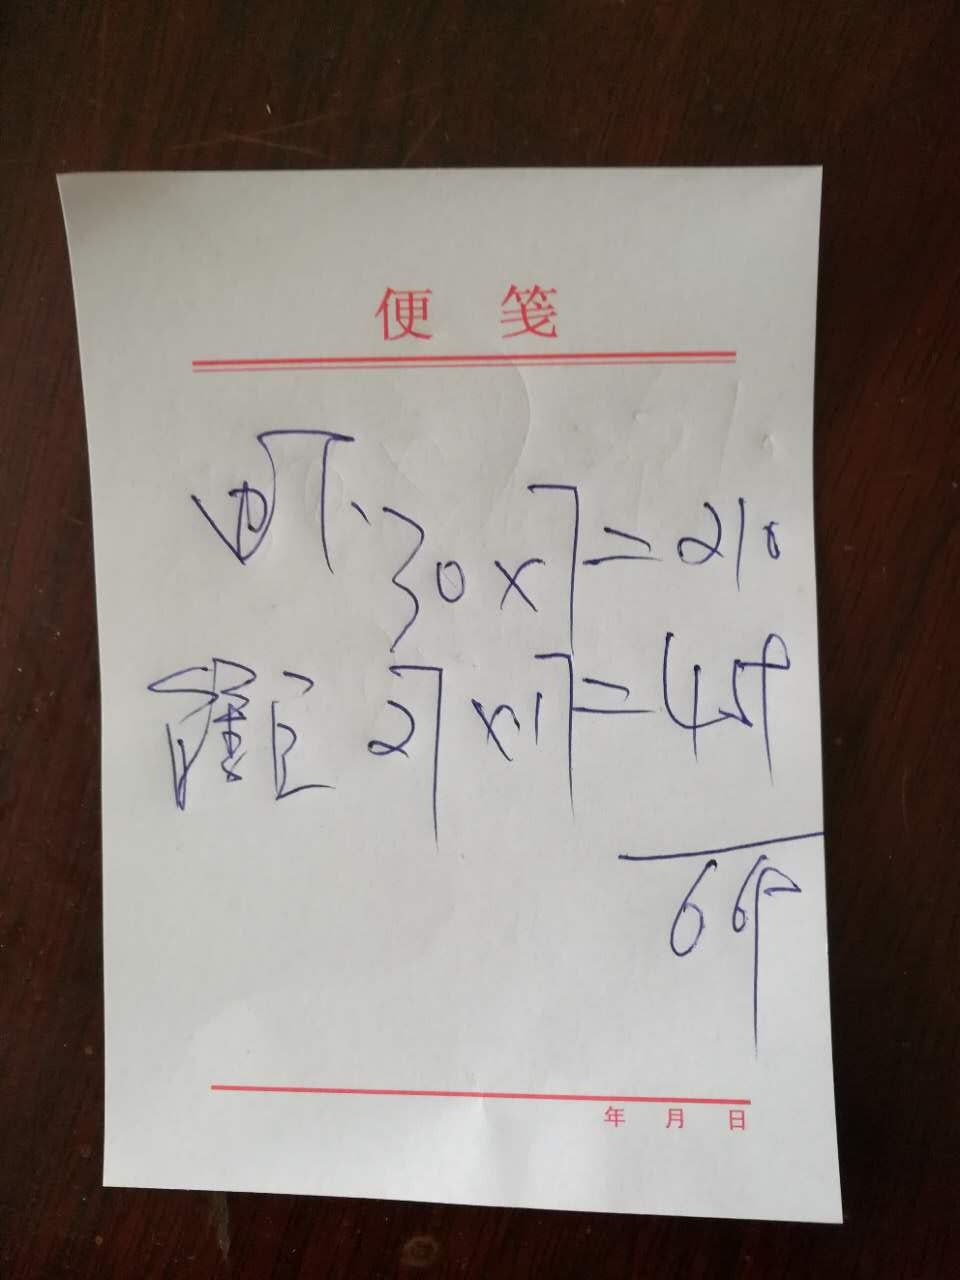 便 笺
30×7=210
27×17=459
669
年 月 日